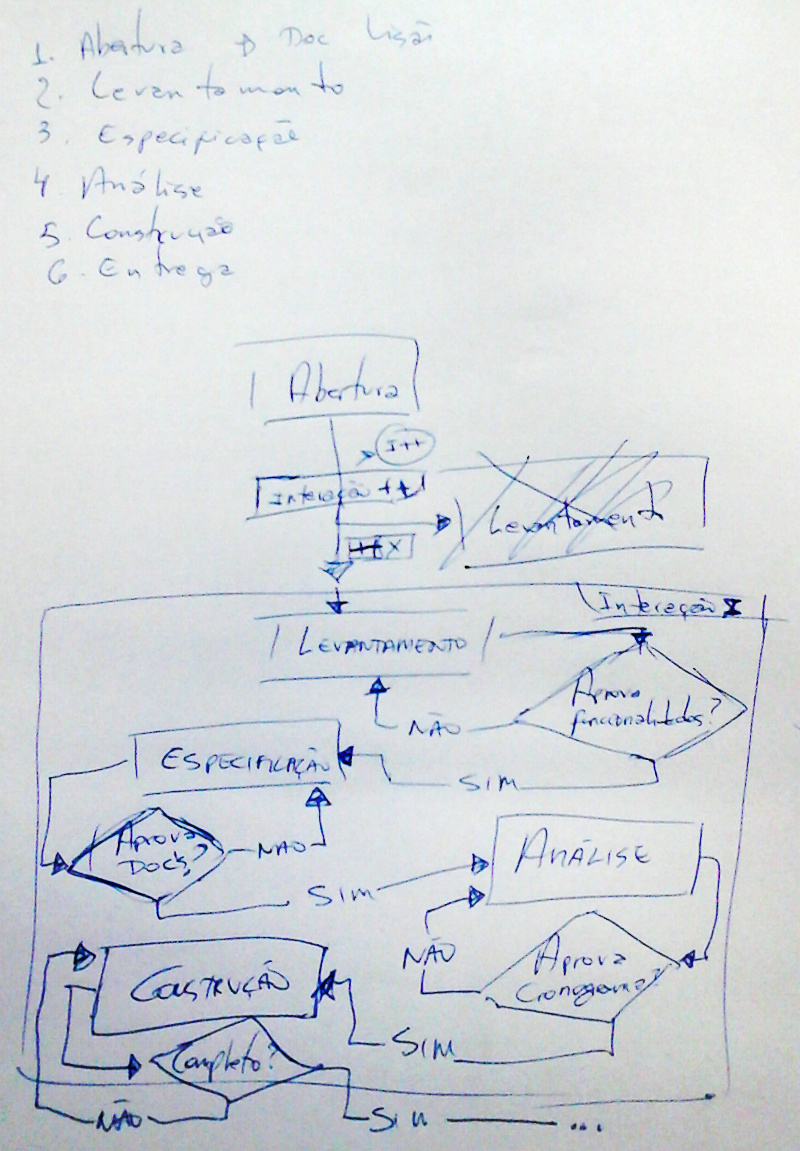 1. Abertura → Doc Visão
2. Levantamento
3. Especificação
4 Análise
5. Construção
6. Entrega
Abertura
I++
Interação ++
Levantamento
X
Interação I
LEVANTAMENTO
Aprova
funcionalidades?
NÃO
ESPECIFICAÇÃO
SIM
Aprova
Docs?
NÃO
ANÁLISE
SIM
NÃO
Aprova
Cronograma?
CONSTRUÇÃO
SIM
Completo?
NÃO
SIM ...